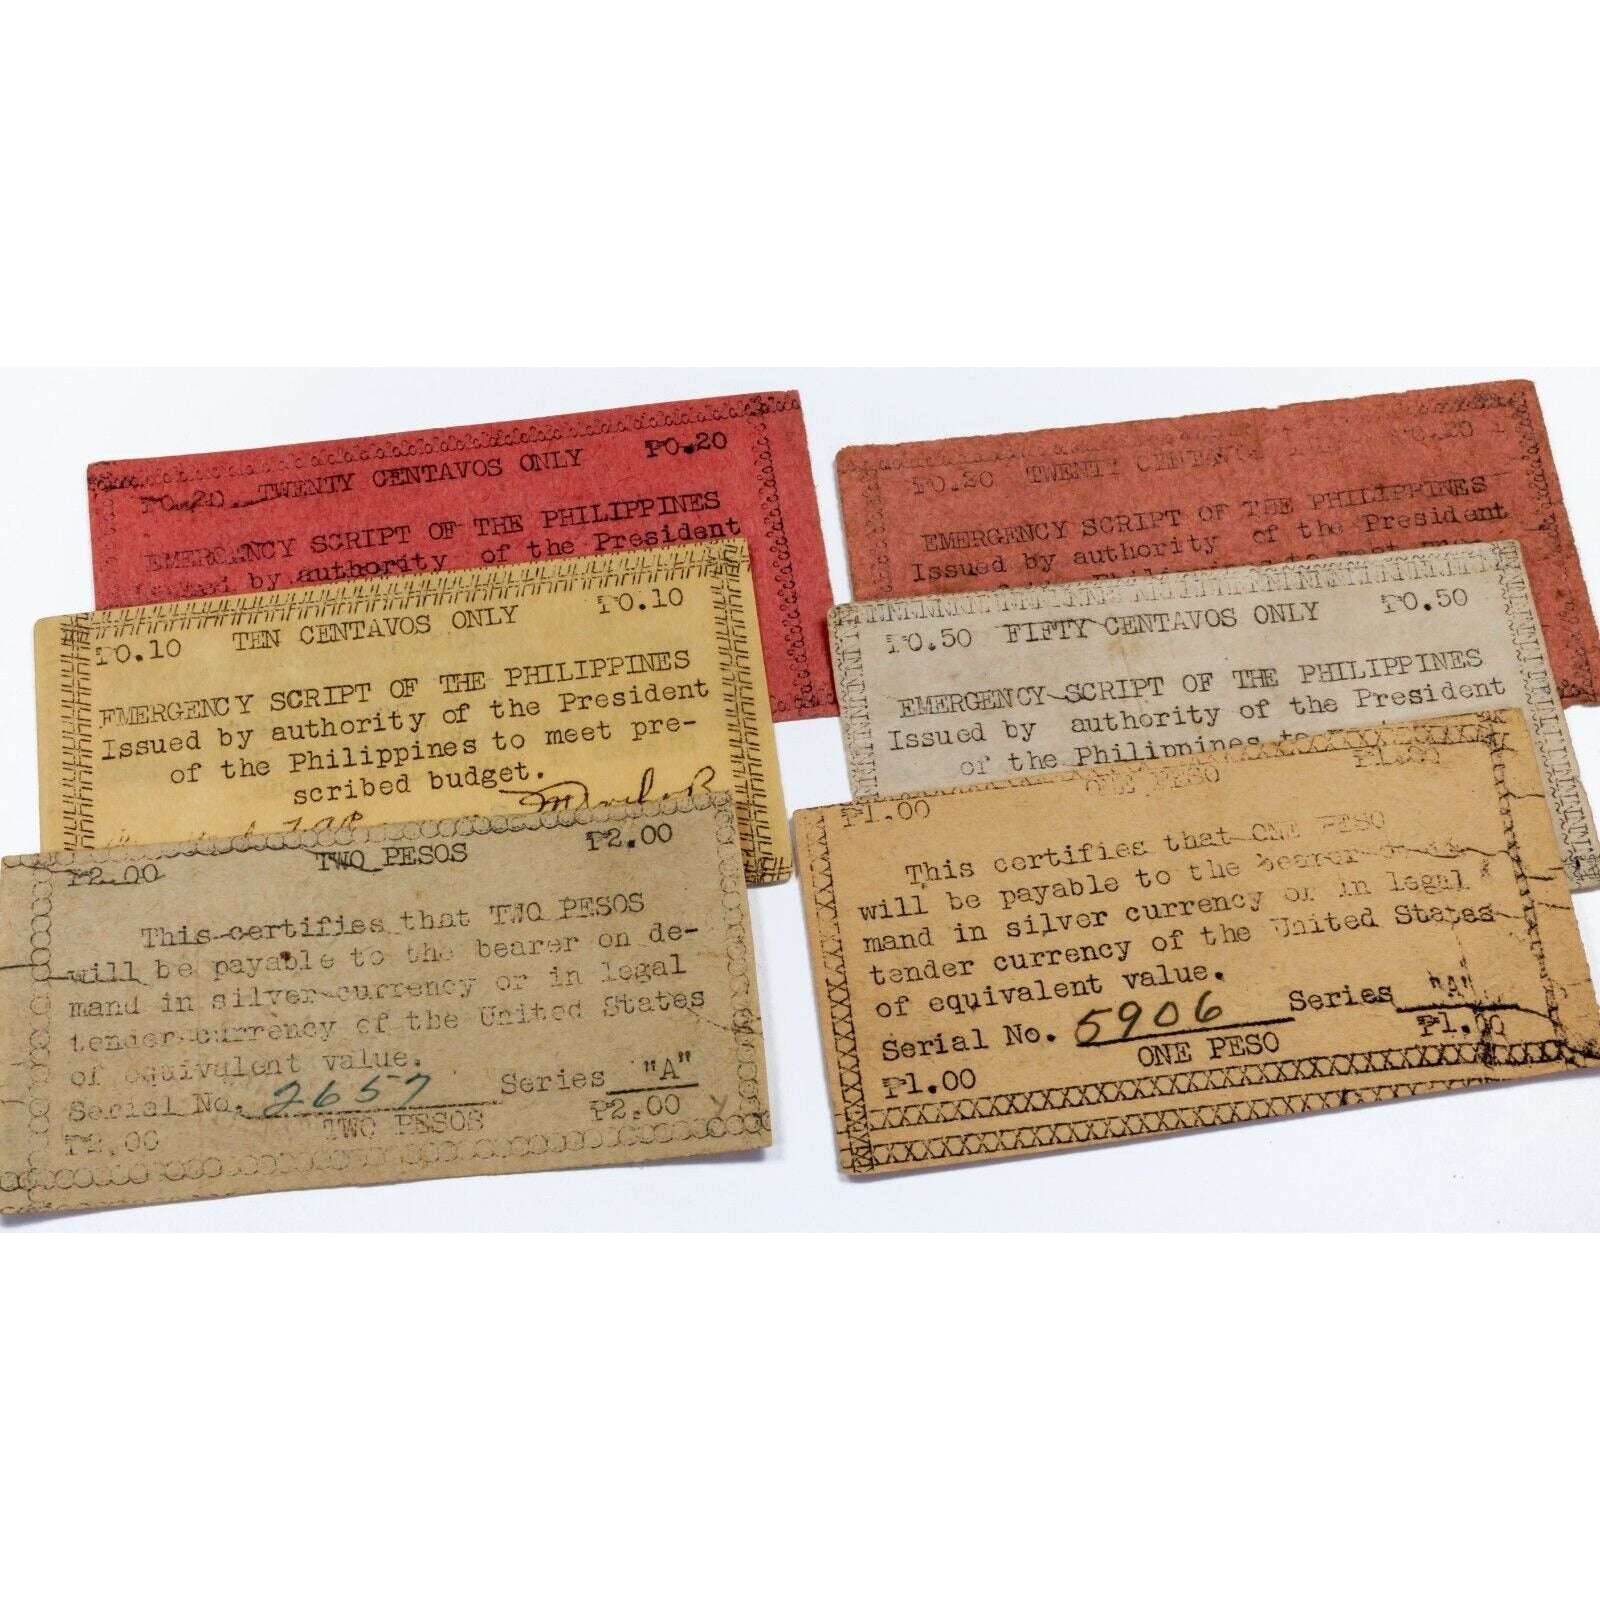 ₱0.20 TWENTY CENTAVOS ONLY ₱0.20
EMERGENCY SCRIPT OF THE PHILIPPINES
Issued by authority of the President
₱0.20 TWENTY CENTAVOS ₱0.20
EMERGENCY SCRIPT OF THE PHILIPPINES
Issued by authority of the President
₱0.10 TEN CENTAVOS ONLY ₱0.10
EMERGENCY SCRIPT OF THE PHILIPPINES
Issued by authority of the President
of the Philippines to meet pre-
scribed budget.
₱0.50 FIFTY CENTAVOS ONLY ₱0.50
EMERGENCY SCRIPT OF THE PHILIPPINES
Issued by authority of the President
of the Philippines to
₱2.00 TWO PESOS ₱2.00
This certifies that TWO PESOS
will be payable to the bearer on de-
mand in silver currency or in legal
tender currency of the United States
of equivalent value.
Serial No. 2657 Series "A"
₱2.00 TWO PESOS ₱2.00
₱1.00 ONE PESO ₱1.00
This certifies that ONE PESO
will be payable to the bearer
mand in silver currency or in legal
tender currency of the United States
of equivalent value.
Serial No. 5906 Series "A"
₱1.00 ONE PESO ₱1.00